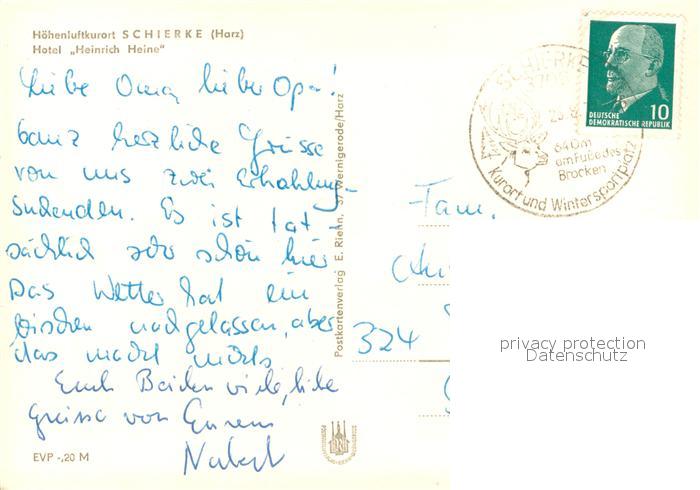 Höhenluftkurort SCHIERKE (Harz)
Hotel „Heinrich Heine"
Liebe Oma, lieber Opa!
Ganz herzliche Grüsse
von uns zwei Erholung-
suchenden. Es ist tat-
sächlich sehr schön hier
Das Wetter hat ein
bischen nachgelassen, aber
das macht nichts
Euch Beiden viele, liebe
Grüsse von Eurem
EVP -,20 M
Postkartenverlag E. Riehn, 37 Wernigerode/Harz
SCHIERKE
3709
640m
am Fuße des
Brocken
Kurort und Wintersportplatz
DEUTSCHE
DEMOKRATISCHE REPUBLIK
10
Fam.
324
privacy protection
Datenschutz